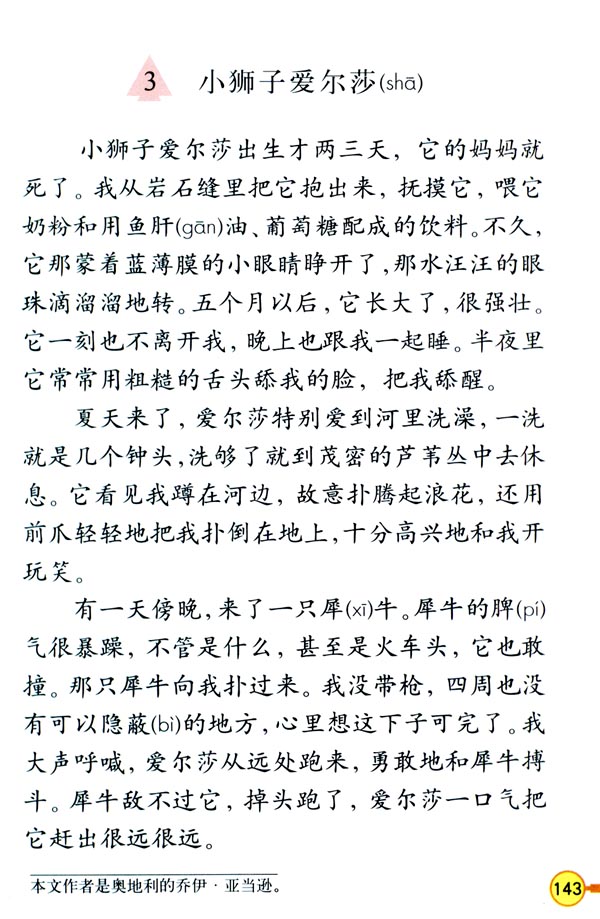 3 小狮子爱尔莎(shā)
小狮子爱尔莎出生才两三天，它的妈妈就
死了。我从岩石缝里把它抱出来，抚摸它，喂它
奶粉和用鱼肝(gān)油、葡萄糖配成的饮料。不久，
它那蒙着蓝薄膜的小眼睛睁开了，那水汪汪的眼
珠滴溜溜地转。五个月以后，它长大了，很强壮。
它一刻也不离开我，晚上也跟我一起睡。半夜里
它常常用粗糙的舌头舔我的脸，把我舔醒。
夏天来了，爱尔莎特别爱到河里洗澡，一洗
就是几个钟头，洗够了就到茂密的芦苇丛中去休
息。它看见我蹲在河边，故意扑腾起浪花，还用
前爪轻轻地把我扑倒在地上，十分高兴地和我开
玩笑。
有一天傍晚，来了一只犀(xī)牛。犀牛的脾(pí)
气很暴躁，不管是什么，甚至是火车头，它也敢
撞。那只犀牛向我扑过来。我没带枪，四周也没
有可以隐蔽(bì)的地方，心里想这下子可完了。我
大声呼喊，爱尔莎从远处跑来，勇敢地和犀牛搏
斗。犀牛敌不过它，掉头跑了，爱尔莎一口气把
它赶出很远很远。
本文作者是奥地利的乔伊·亚当逊。
143